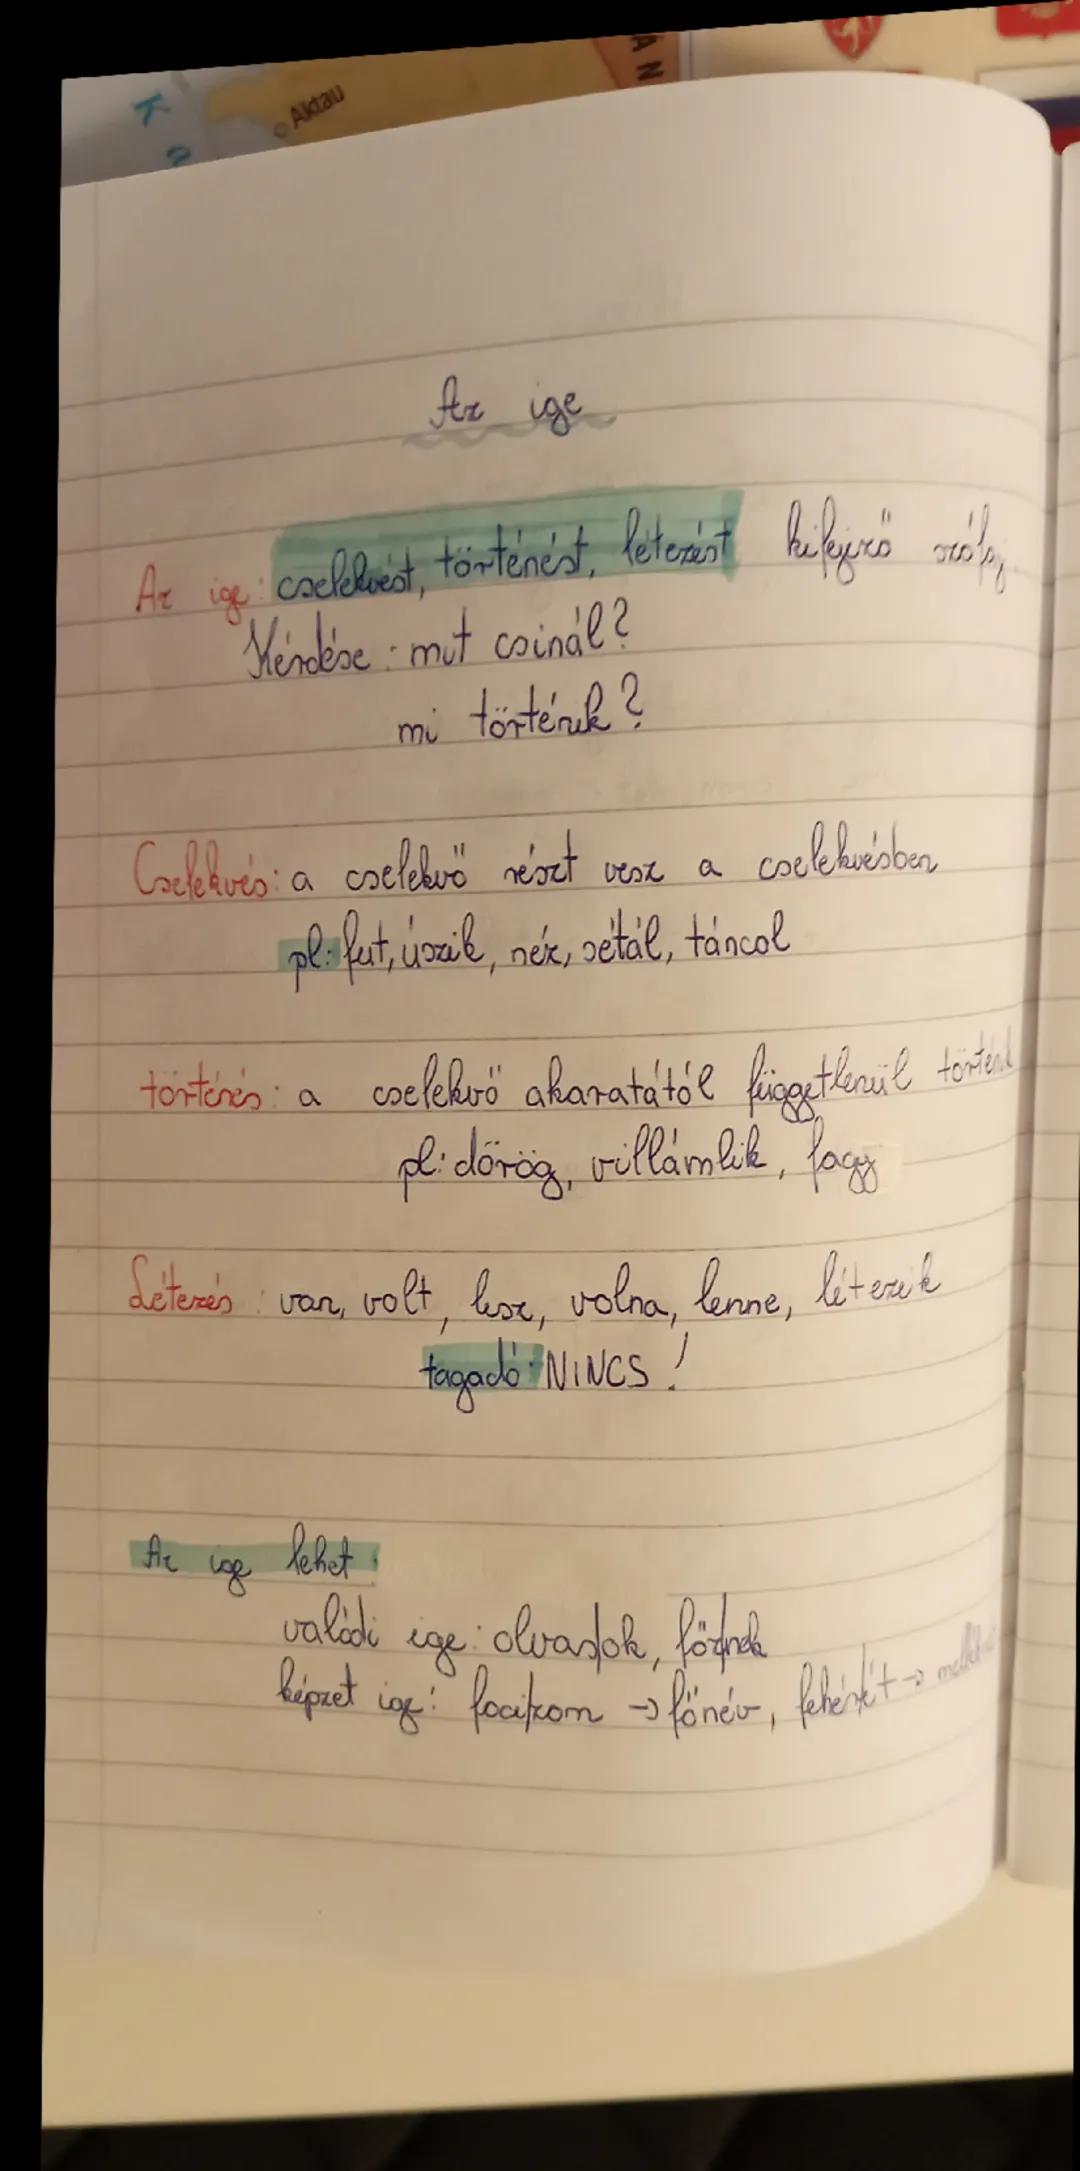 K
Aktau
ÁN
Az ige
Az ige: cselekvést, történést, létezést kifejező szófaj.
Kérdése: mit csinál?
mi történik?
Cselekvés: a cselekvő részt vesz a cselekvésben
pl: fut, úszik, néz, sétál, táncol
történés: a cselekvő akaratától függetlenül történik
pl: dörög, villámlik, fagy
Létezés: van, volt, lesz, volna, lenne, létezik
tagadó: NINCS!
Az ige lehet:
valódi ige: olvas|ok, főz|nek
képzet ige: foci|zom → főnév, fehér|ít →